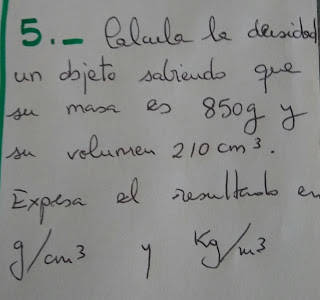 5._ Calcula la densidad
un objeto sabiendo que
su masa es 850g y
su volumen 210 cm³.
Expresa el resultado en
g/cm³ y Kg/m³